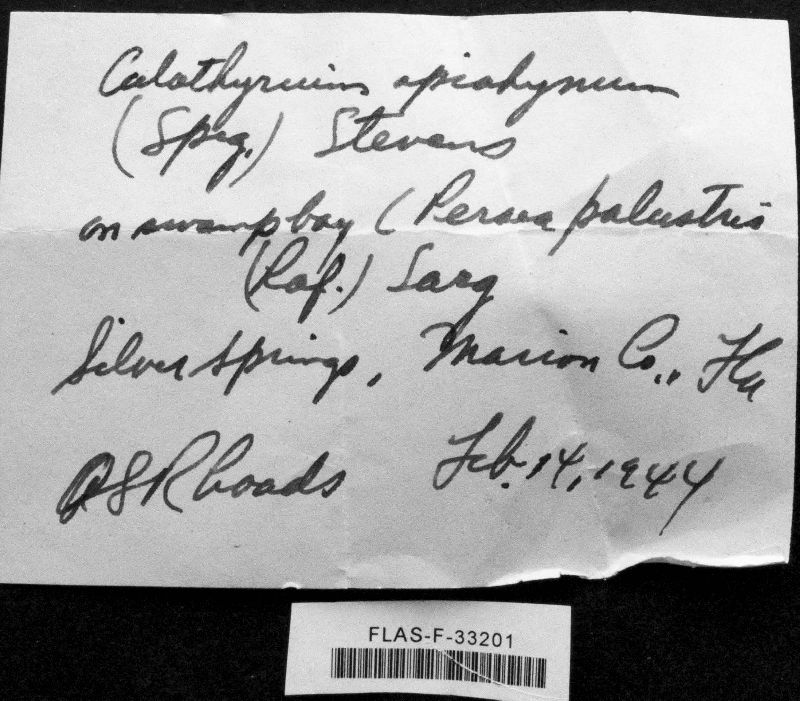 Calothyrium apiahynum
(Speg.) Stevens
on swampbay (Persea palustris
(Raf.) Sarg
Silver Springs, Marion Co., Fla
ASRhoads Feb. 14, 1944
FLAS-F-33201